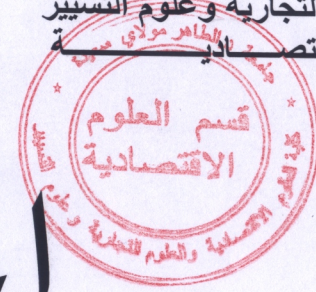 التجارية وعلوم التسيير
تصــاديـــة
الطاهر مولاي
قسم العلوم
الاقتصادية
كلية العلوم الاقتصادية والعلوم التجارية و علوم التسيير